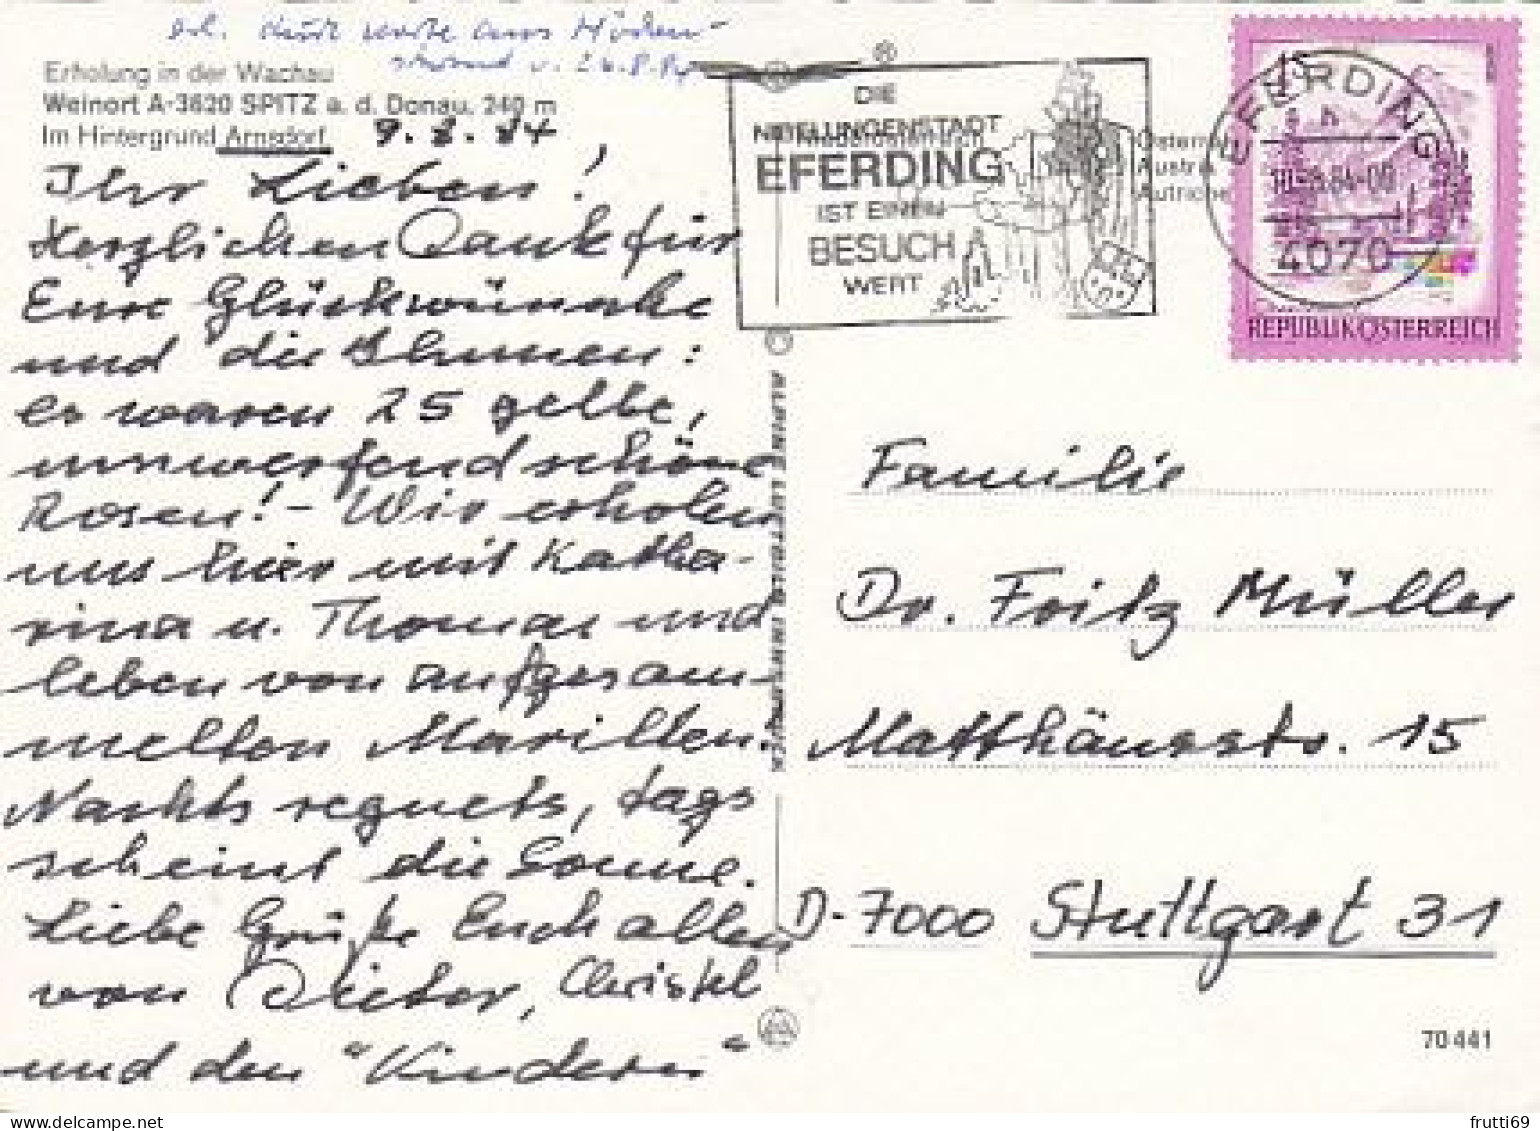 erl. durch Karte aus Höchen-
schwand v. 26.8.84
Erholung in der Wachau
Weinort A-3620 SPITZ a. d. Donau, 240 m
Im Hintergrund Arnsdorf
9. 8. 84
Ihr Lieben!
Herzlichen Dank für
Eure Glückwünsche
und die Blumen:
es waren 25 gelbe,
umwerfend schöne
Rosen! - Wir erholen
uns hier mit Katha-
rina u. Thomas und
leben von aufgesam-
melten Marillen.
Nachts regnets, tags
scheint die Sonne.
Liebe Grüße Euch allen
von Dieter, Christel
und den "Kindern"
DIE
NIBELUNGENSTADT
EFERDING
IST EINEN
BESUCH
WERT
Niederösterreich
Österrei
Austria
Autriche
EFERDING
4070
REPUBLIK ÖSTERREICH
Familie
Dr. Fritz Müller
Matthäusstr. 15
D-7000 Stuttgart 31
70 441
frutti69